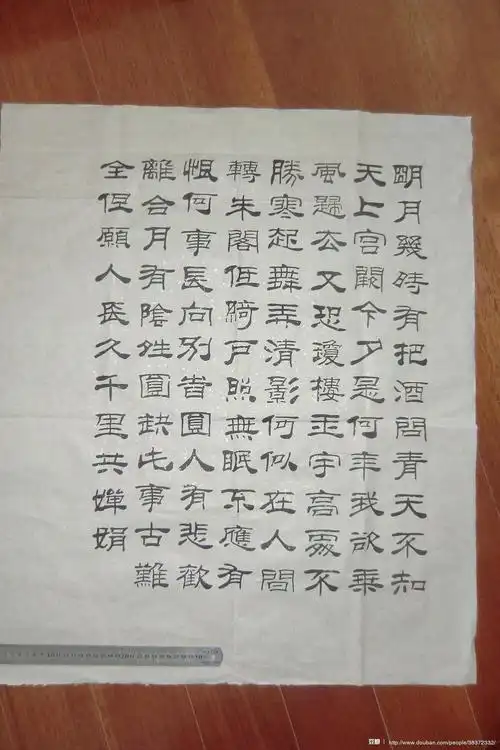 明月幾時有把酒問青天不知
天上宮闕今夕是何年我欲乘
風歸去又恐瓊樓玉宇高處不
勝寒起舞弄清影何似在人間
轉朱閣低綺戶照無眠不應有
恨何事長向別旹圓人有悲歡
離合月有陰夝圓缺此事古難
全但願人長久千里共嬋娟
http://www.douban.com/people/38372332/